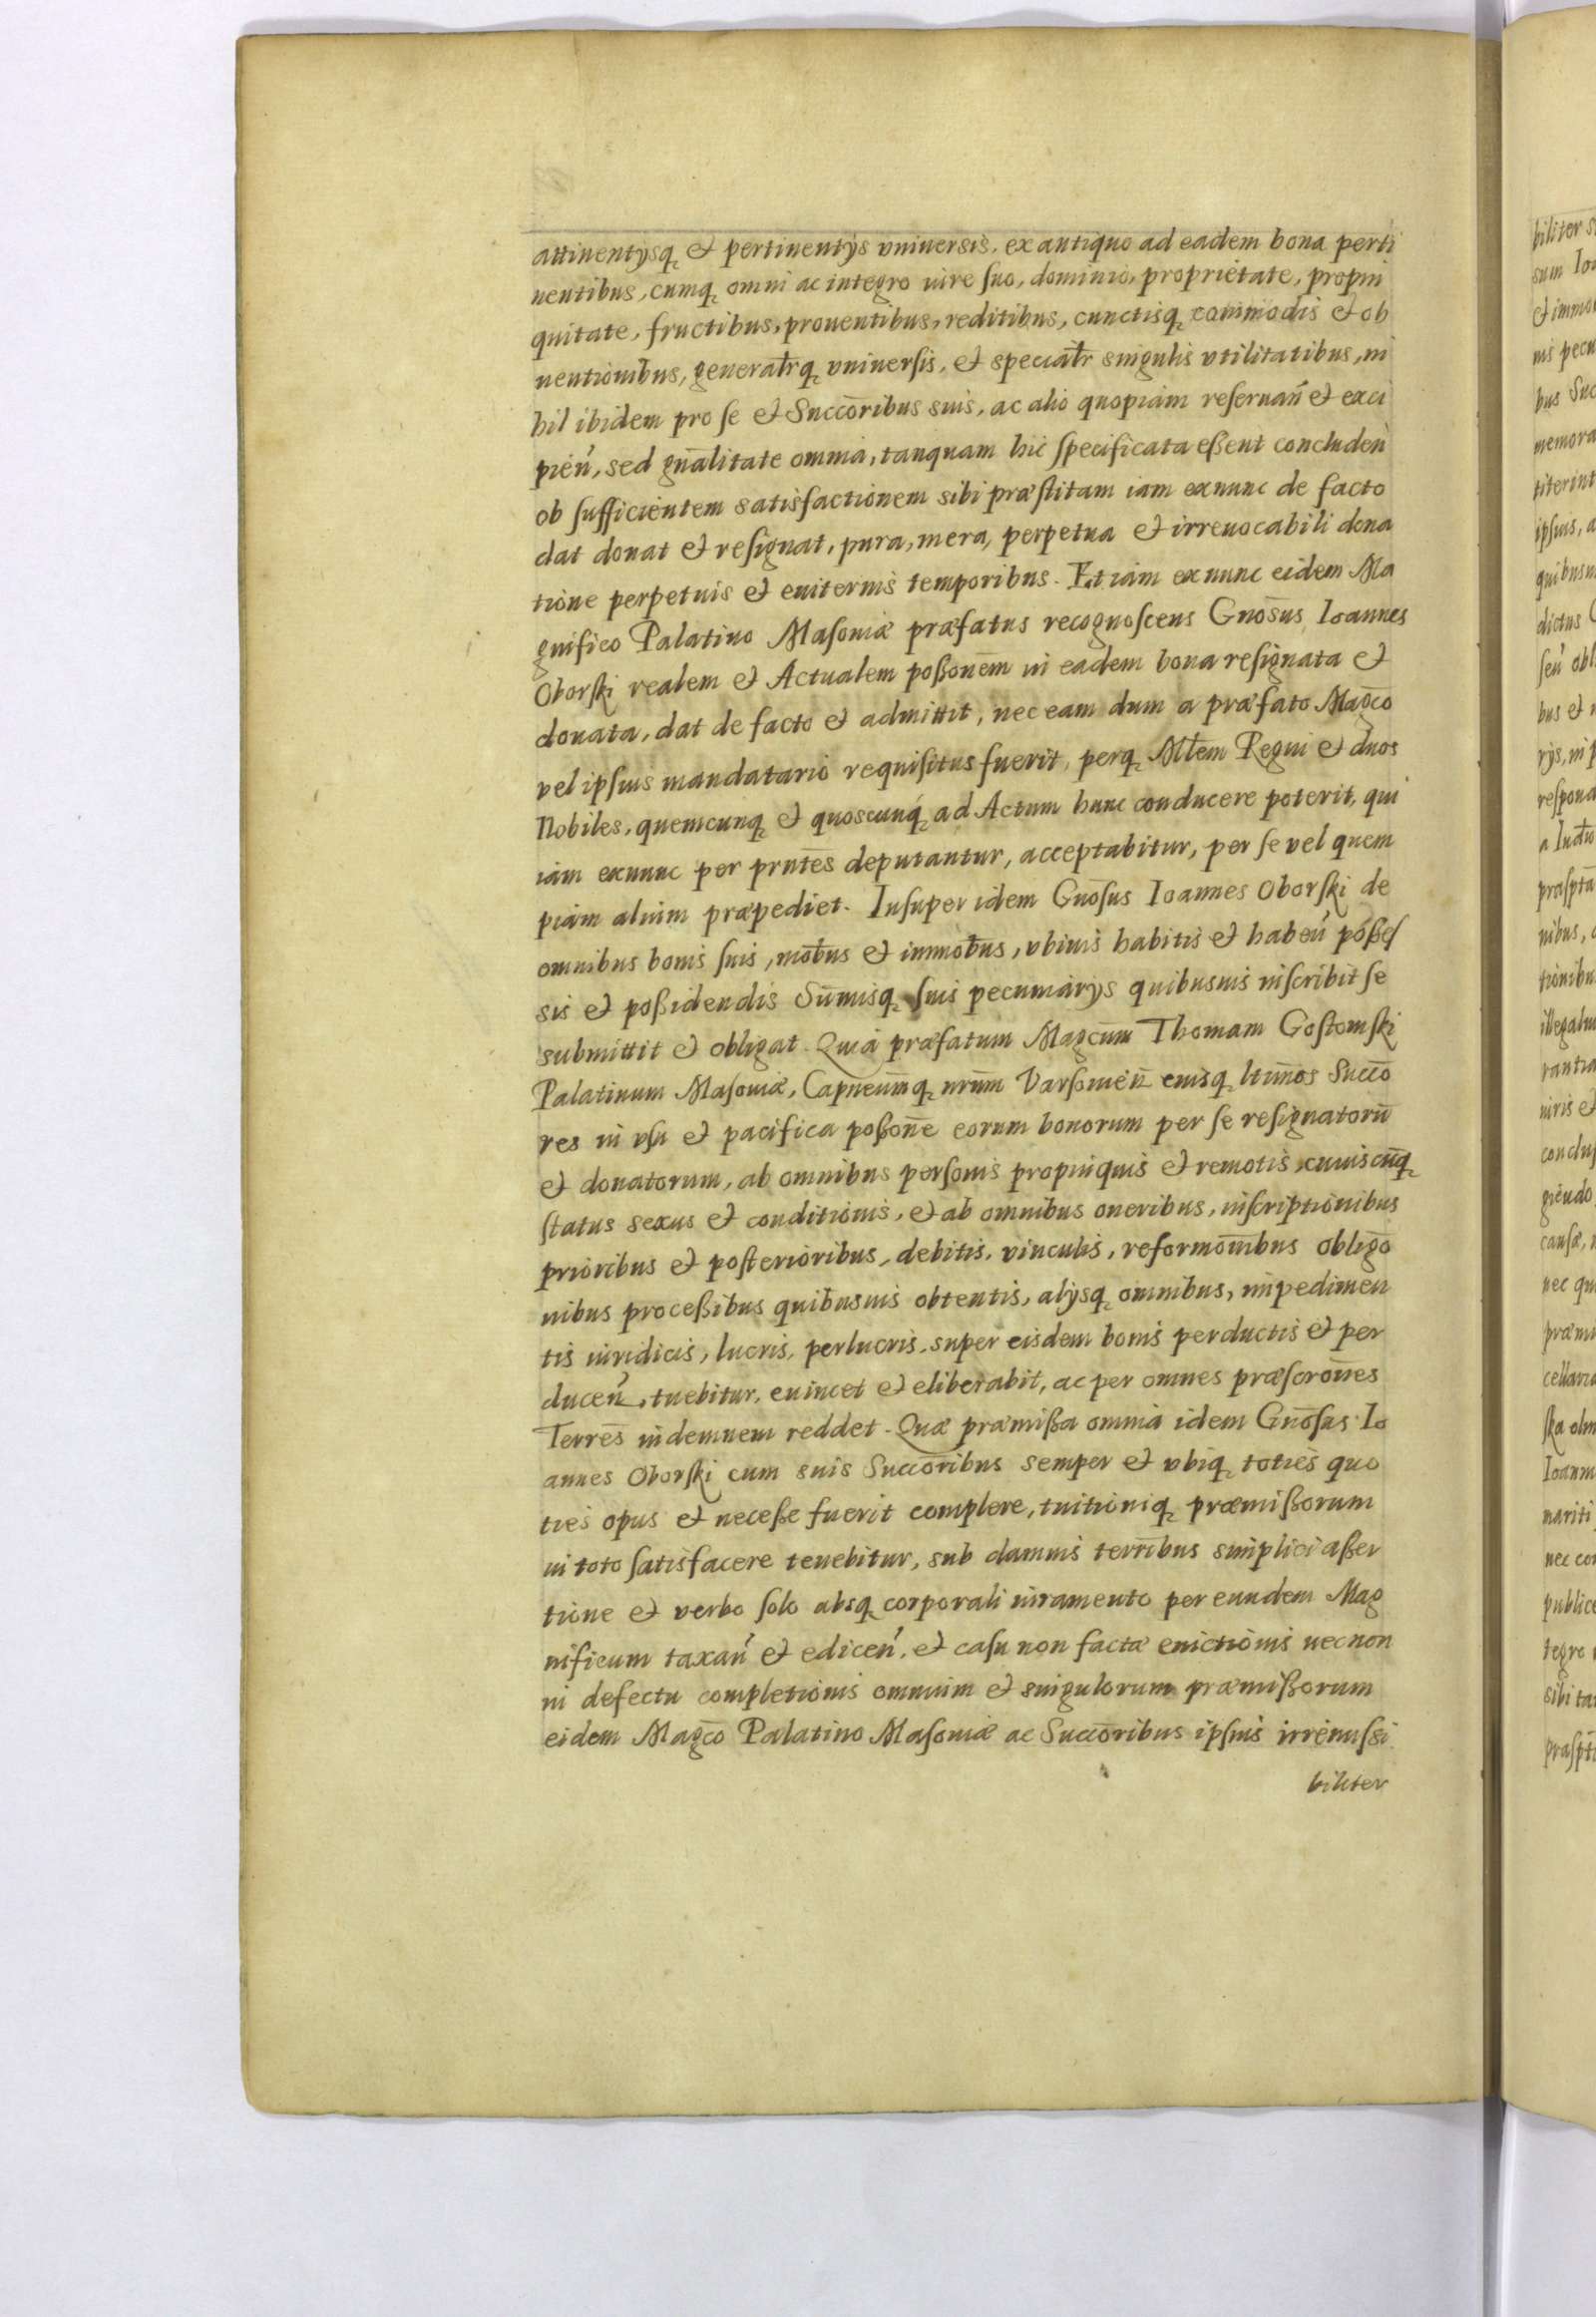 attinentysq et pertinentys vniuersis, ex antiquo ad eadem bona perti
nentibus, cumq omni ac integro iure suo, dominio, proprietate, propin
quitate, fructibus, prouentibus, reditibus, cunctisq commodis et ob
uentionibus, generatrq vniuersis, et speciatr singulis vtilitatibus, ni
hil ibidem pro se et Succoribus suis, ac alio quopiam reseruan et exci
pien, sed gnalitate omnia, tanquam hic specificata eßent concluden
ob sufficientem satisfactionem sibi præstitam iam exnunc de facto
dat donat et resignat, pura, mera, perpetua et irreuocabili dona
tione perpetuis et euiternis temporibus. Et iam exnunc eidem Ma
gnifico Palatino Masouiæ præfatus recognoscens Gnosus Ioannes
Oborski realem et Actualem poßonem in eadem bona resignata et
donata, dat de facto et admittit, nec eam dum a præfato Magco
vel ipsius mandatario requisitus fuerit, perq Mltem Regni et duos
Nobiles, quemcunq et quoscunq ad Actum hunc conducere poterit, qui
iam exnunc per prntes deputantur, acceptabitur, per se vel quem
piam alium præpediet. Insuper idem Gnosus Ioannes Oborski de
omnibus bonis suis, mobus et immobus, vbiuis habitis et haben póßes
sis et poßidendis Summisq suis pecuniarys quibusuis inscribit se
submittit et obligat. Quia præfatum Magcum Thomam Gostomski
Palatinum Masouiæ, Capneumq nrum Varsouien eiusq ltimos Succo
res in vsu et pacifica poßone eorum bonorum per se resignatoru
et donatorum, ab omnibus personis propinquis et remotis cuiuscunq
status sexus et conditionis, et ab omnibus oneribus, inscriptionibus
prioribus et posterioribus, debitis, vinculis, reformonibus obligo
nibus proceßibus quibusuis obtentis, alysq omnibus, impedimen
tis iuridicis, lucris, perlucris, super eisdem bonis perductis et per
ducen, tuebitur, euincet et eliberabit, ac per omnes præscrones
Terres indemnem reddet. Quæ præmißa omnia idem Gnosus Io
annes Oborski cum suis Succoribus semper et vbiq toties quo
ties opus et neceße fuerit complere, tuitioniq præmißorum
in toto satisfacere tenebitur, sub damnis terribus simplici aßer
tione et verbo solo absq corporali iuramento per eundem Mag
nificum taxan et edicen, et casu non factæ euictionis necnon
in defectu completionis omnium et singulorum præmißorum
eidem Magco Palatino Masouiæ ac Succoribus ipsius irremissi
biliter